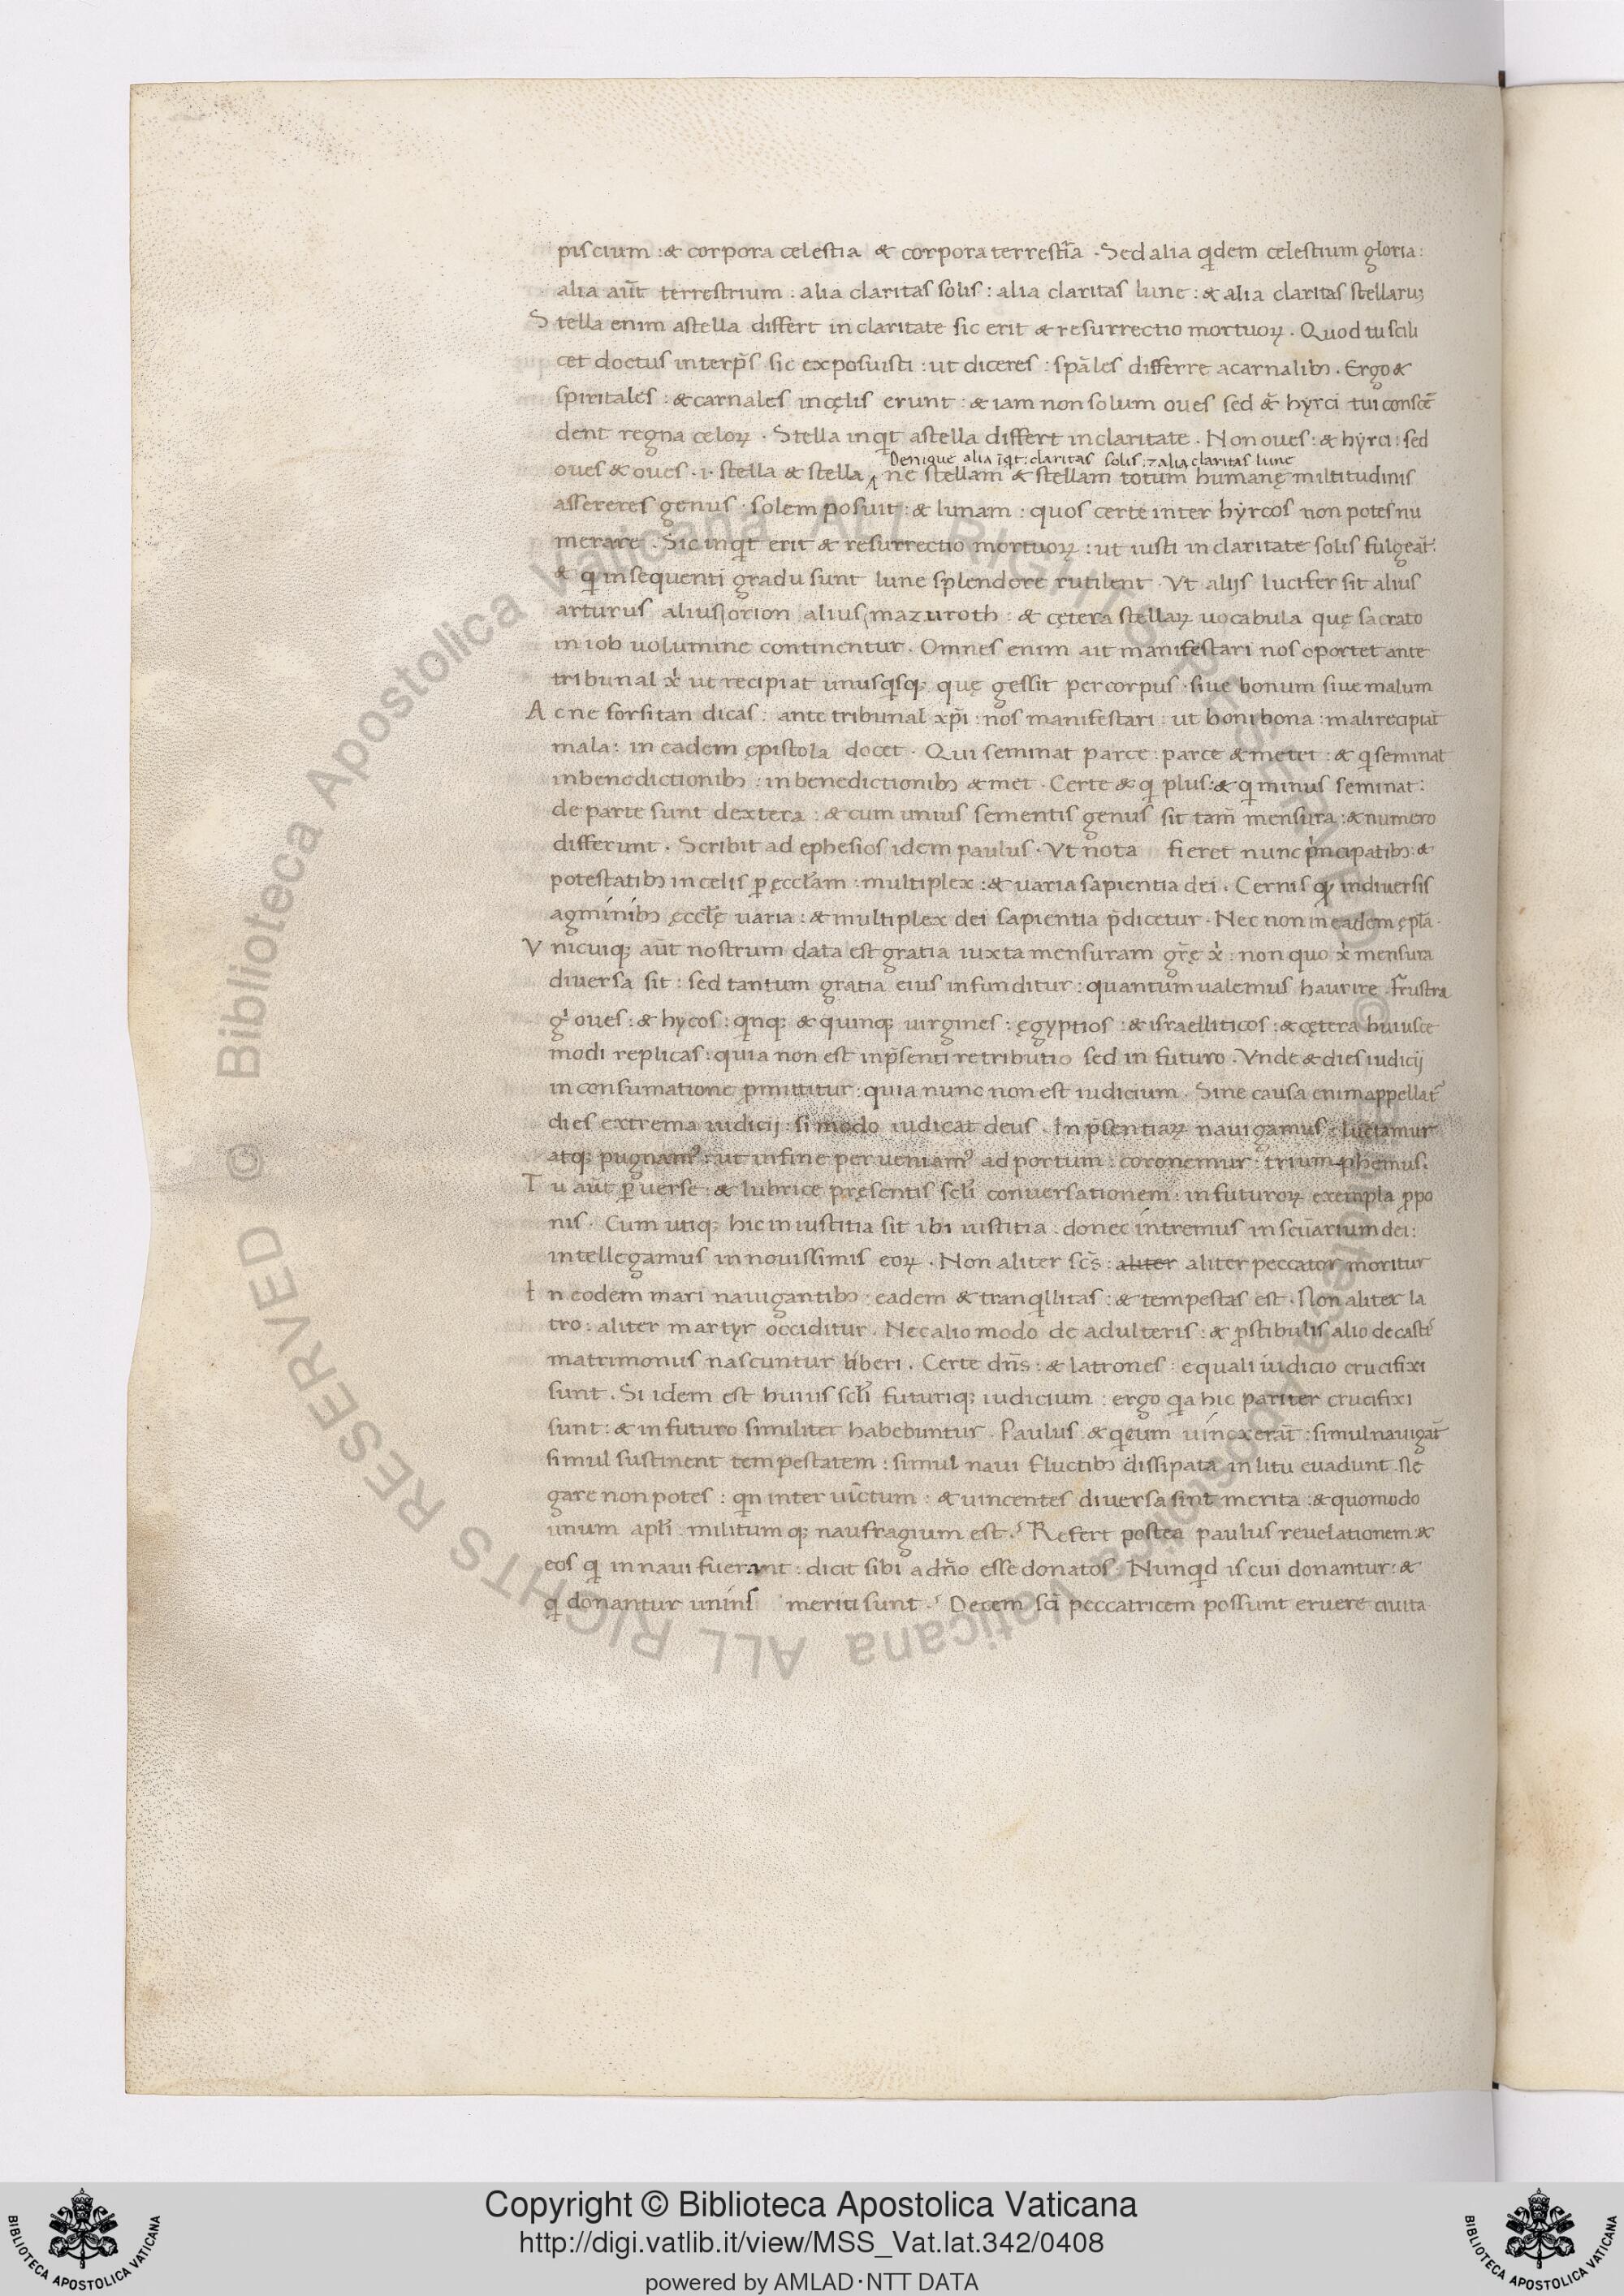 piscium : & corpora celestia & corpora terrestr̄ia . Sed alia qdem celestium gloria :
alia aut̄ terrestrium . alia claritas solis : alia claritas lune : & alia claritas stellaruʒ
Stella enim astella differt in claritate sic erit & resurrectio mortuoꝝ . Quod tu scili
cet doctus interp̄s sic exposuisti : ut diceres : spāles differre acarnalibʒ . Ergo &
spiritales : & carnales incęlis erunt : & iam non solum oues sed & hyrci tui conscē
dent regna celoꝝ . Stella inqt astella differt inclaritate . Non oues : & hyrci : sed
Denique alia īqt : claritas solis : ⁊ alia claritas lune
oues & oues . i . stella & stella ‸ ne stellam & stellam totum humanę miltitudinis
assereres genus . solem posuit : & lunam : quos certe inter hyrcos non potes nu
merare . Sic inqt erit & resurrectio mortuoꝝ : ut iusti in claritate solis fulgeāt .
& q insequenti gradu sunt lune splendore rutilent . Vt alijs lucifer sit alius
arturus alius orion alius mazuroth : & cętera stellaꝝ uocabula quę sacrato
in iob uolumine continentur . Omnes enim ait manifestari nos oportet ante
tribunal x̓ ut recipiat unusqsqʒ quę gessit per corpus . siue bonum siue malum
Ac ne forsitan dicas : ante tribunal xp̄i : nos manifestari : ut boni bona : mali recipiāt
mala : in eadem ępistola docet . Qui seminat parce : parce & metet : & q seminat
inbenedictionibʒ : in benedictionibʒ & met . Certe & q plus : & q minus seminat :
de parte sunt dextera : & cum unius sementis genus sit tam̄ mensura : & numero
differunt . Scribit ad ephesios idem paulus . Vt nota fieret nunc p̓ncipatibʒ : &
potestatibʒ in celis ꝑ ęccl̄am : multiplex : & uaria sapientia dei . Cernis qꝫ indiuersis
agminibʒ ęccl̄ę uaria : & multiplex dei sapientia p̄dicetur . Nec non in eadem ępl̄a .
Vnicuiqʒ aut̄ nostrum data est gratia iuxta mensuram gr̄ę x̓ : non quo x̓ mensura
diuersa sit : sed tantum gratia eius infunditur : quantum ualemus haurire . frustra
g̓ oues : & hycos : qnqʒ & quinqʒ uirgines : ęgyptios : & israelliticos : & cętera huiusce
modi replicas : quia non est inp̄senti retributio sed in futuro . Vnde & dies iudicij
in consumatione ꝓmittitur : quia nunc non est iudicium . Sine causa enim appellat̄
dies extrema iudicij : si modo iudicat deus . In p̄sentiaꝝ nauigamus : luctamur
atqʒ pugnamꝰ : ut infine perueniamꝰ ad portum : coronemur : triumphemus .
Tu aut̄ ꝑuerse : & lubrice pręsentis scl̄i conuersationem : in futuroꝝ exempla ꝓpo
nis . Cum utiqʒ hic iniustitia sit ibi iustitia . donec intremus in scūarium dei :
intellegamus in nouissimis eoꝝ . Non aliter sc̄s : aliter aliter peccator moritur
In eodem mari nauigantibʒ : eadem & tranqllitas : & tempestas est . Non aliter la
tro : aliter martyr occiditur . Nec alio modo de adulteris : & ꝓstibulis alio de cast̄
matrimonus nascuntur liberi . Certe dn̄s : & latrones : equali iudicio crucifixi
sunt . Si idem est huius scl̄i futuriqʒ iudicium : ergo qa hic pariter crucifixi
sunt : & in futuro similiter habebuntur . Paulus & q eum uinxerāt : simul nauigāt
simul sustinent tempestatem : simul naui fluctibʒ dissipata in litu euadunt . Ne
gare non potes : qn inter uīctum : & uincentes diuersa sint merita : & quomodo
unum apl̄i . militum qʒ naufragium est . Refert postea paulus reuelationem &
eos q in naui fuerant : dicit sibi a dn̄o esse donatos . Nunqd is cui donantur : &
q donantur unins meriti sunt . Decem sc̄i peccatricem possunt eruere ciuita
Copyright © Biblioteca Apostolica Vaticana
http://digi.vatlib.it/view/MSS_Vat.lat.342/0408
powered by AMLAD·NTT DATA